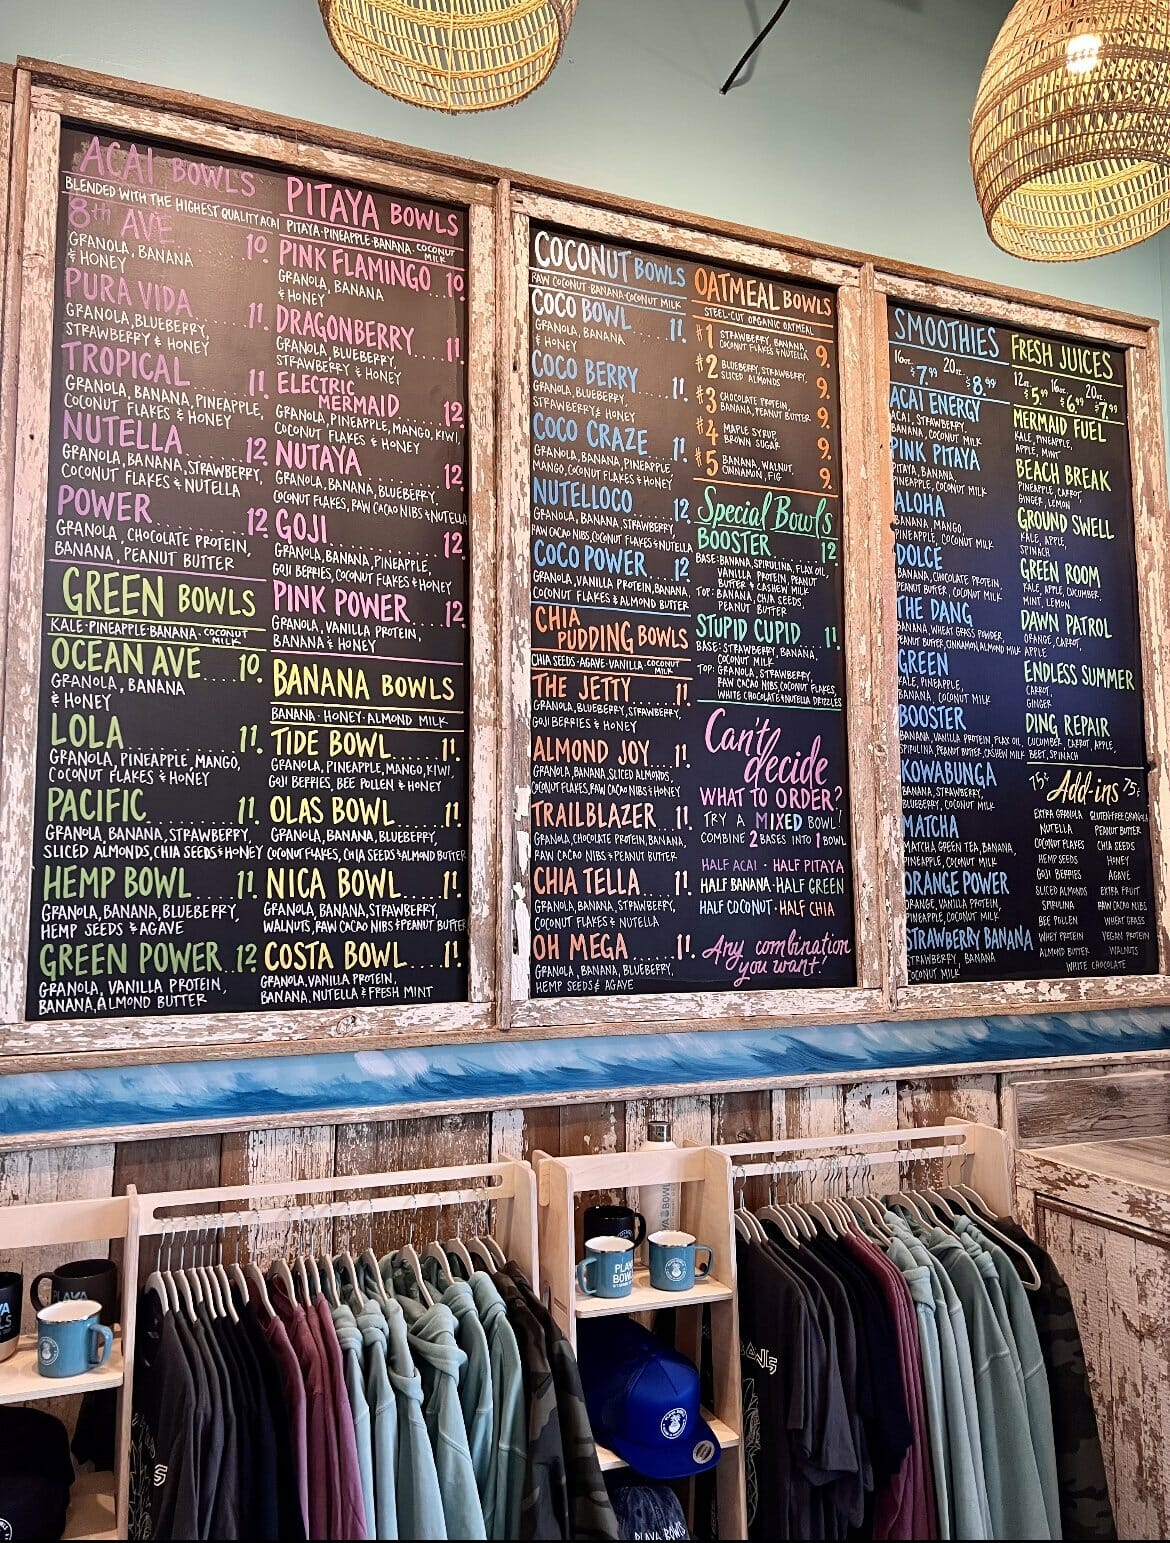 ACAI BOWLS
BLENDED WITH THE HIGHEST QUALITY ACAI
8th AVE 10.
GRANOLA, BANANA
& HONEY
PURA VIDA 11.
GRANOLA, BLUEBERRY,
STRAWBERRY & HONEY
TROPICAL 11.
GRANOLA, BANANA, PINEAPPLE,
COCONUT FLAKES & HONEY
NUTELLA 12
GRANOLA, BANANA, STRAWBERRY,
COCONUT FLAKES & NUTELLA
POWER 12
GRANOLA, CHOCOLATE PROTEIN,
BANANA, PEANUT BUTTER
GREEN BOWLS
KALE · PINEAPPLE · BANANA · COCONUT MILK
OCEAN AVE 10.
GRANOLA, BANANA
& HONEY
LOLA 11.
GRANOLA, PINEAPPLE, MANGO,
COCONUT FLAKES & HONEY
PACIFIC 11.
GRANOLA, BANANA, STRAWBERRY,
SLICED ALMONDS, CHIA SEEDS & HONEY
HEMP BOWL 11.
GRANOLA, BANANA, BLUEBERRY,
HEMP SEEDS & AGAVE
GREEN POWER 12
GRANOLA, VANILLA PROTEIN,
BANANA, ALMOND BUTTER
PITAYA BOWLS
PITAYA · PINEAPPLE · BANANA · COCONUT MILK
PINK FLAMINGO 10.
GRANOLA, BANANA
& HONEY
DRAGONBERRY 11.
GRANOLA, BLUEBERRY,
STRAWBERRY & HONEY
ELECTRIC
MERMAID 12
GRANOLA, PINEAPPLE, MANGO, KIWI,
COCONUT FLAKES & HONEY
NUTAYA 12.
GRANOLA, BANANA, BLUEBERRY,
COCONUT FLAKES, RAW CACAO NIBS & NUTELLA
GOJI 12.
GRANOLA, BANANA, PINEAPPLE,
GOJI BERRIES, COCONUT FLAKES & HONEY
PINK POWER 12
GRANOLA, VANILLA PROTEIN,
BANANA & HONEY
BANANA BOWLS
BANANA · HONEY · ALMOND MILK
TIDE BOWL 11.
GRANOLA, PINEAPPLE, MANGO, KIWI,
GOJI BERRIES, BEE POLLEN & HONEY
OLAS BOWL 11.
GRANOLA, BANANA, BLUEBERRY,
COCONUT FLAKES, CHIA SEEDS & ALMOND BUTTER
NICA BOWL 11.
GRANOLA, BANANA, STRAWBERRY,
WALNUTS, RAW CACAO NIBS & PEANUT BUTTER
COSTA BOWL 11.
GRANOLA, VANILLA PROTEIN,
BANANA, NUTELLA & FRESH MINT
COCONUT BOWLS
RAW COCONUT · BANANA · COCONUT MILK
COCO BOWL 11.
GRANOLA, BANANA
& HONEY
COCO BERRY 11.
GRANOLA, BLUEBERRY,
STRAWBERRY & HONEY
COCO CRAZE 11.
GRANOLA, BANANA, PINEAPPLE
MANGO, COCONUT FLAKES & HONEY
NUTELLOCO 12
GRANOLA, BANANA, STRAWBERRY,
RAW CACAO NIBS, COCONUT FLAKES & NUTELLA
COCO POWER 12
GRANOLA, VANILLA PROTEIN, BANANA,
COCONUT FLAKES & ALMOND BUTTER
CHIA
PUDDING BOWLS
CHIA SEEDS · AGAVE · VANILLA · COCONUT MILK
THE JETTY 11.
GRANOLA, BLUEBERRY, STRAWBERRY,
GOJI BERRIES & HONEY
ALMOND JOY 11.
GRANOLA, BANANA, SLICED ALMONDS,
COCONUT FLAKES, RAW CACAO NIBS & HONEY
TRAILBLAZER 11.
GRANOLA, CHOCOLATE PROTEIN, BANANA,
RAW CACAO NIBS & PEANUT BUTTER
CHIA TELLA 11.
GRANOLA, BANANA, STRAWBERRY,
COCONUT FLAKES & NUTELLA
OH MEGA 11.
GRANOLA, BANANA, BLUEBERRY,
HEMP SEEDS & AGAVE
OATMEAL BOWLS
STEEL-CUT ORGANIC OATMEAL
#1 STRAWBERRY, BANANA,
COCONUT FLAKES & NUTELLA 9.
#2 BLUEBERRY, STRAWBERRY,
SLICED ALMONDS 9.
#3 CHOCOLATE PROTEIN,
BANANA, PEANUT BUTTER 9.
#4 MAPLE SYRUP,
BROWN SUGAR 9.
#5 BANANA, WALNUT,
CINNAMON, FIG 9.
Special Bowls
BOOSTER 12
BASE: BANANA, SPIRULINA, FLAX OIL,
VANILLA PROTEIN, PEANUT
BUTTER & CASHEW MILK
TOP: BANANA, CHIA SEEDS,
PEANUT BUTTER
STUPID CUPID 11.
BASE: STRAWBERRY, BANANA,
COCONUT MILK
TOP: GRANOLA, STRAWBERRY,
RAW CACAO NIBS, COCONUT FLAKES,
WHITE CHOCOLATE & NUTELLA DRIZZLES
Can't
decide
WHAT TO ORDER?
TRY A MIXED BOWL!
COMBINE 2 BASES INTO 1 BOWL
HALF ACAI · HALF PITAYA
HALF BANANA · HALF GREEN
HALF COCONUT · HALF CHIA
Any combination
you want!
SMOOTHIES
16oz. $7.99 20oz. $8.99
ACAI ENERGY
ACAI, STRAWBERRY,
BANANA, COCONUT MILK
PINK PITAYA
PITAYA, BANANA,
PINEAPPLE, COCONUT MILK
ALOHA
BANANA, MANGO,
PINEAPPLE, COCONUT MILK
DOLCE
BANANA, CHOCOLATE PROTEIN,
PEANUT BUTTER, COCONUT MILK
THE DANG
BANANA, WHEAT GRASS POWDER,
PEANUT BUTTER, CINNAMON, ALMOND MILK
GREEN
KALE, PINEAPPLE,
BANANA, COCONUT MILK
BOOSTER
BANANA, VANILLA PROTEIN, FLAX OIL,
SPIRULINA, PEANUT BUTTER, CASHEW MILK
KOWABUNGA
BANANA, STRAWBERRY,
BLUEBERRY, COCONUT MILK
MATCHA
MATCHA GREEN TEA, BANANA,
PINEAPPLE, COCONUT MILK
ORANGE POWER
ORANGE, VANILLA PROTEIN,
PINEAPPLE, COCONUT MILK
STRAWBERRY BANANA
STRAWBERRY, BANANA
COCONUT MILK
FRESH JUICES
12oz. $5.99 16oz. $6.99 20oz. $7.99
MERMAID FUEL
KALE, PINEAPPLE,
APPLE, MINT
BEACH BREAK
PINEAPPLE, CARROT,
GINGER, LEMON
GROUND SWELL
KALE, APPLE,
SPINACH
GREEN ROOM
KALE, APPLE, CUCUMBER,
MINT, LEMON
DAWN PATROL
ORANGE, CARROT,
APPLE
ENDLESS SUMMER
CARROT,
GINGER
DING REPAIR
CUCUMBER, CARROT, APPLE,
BEET, SPINACH
75¢ Add-ins 75¢
EXTRA GRANOLA GLUTEN FREE GRANOLA
NUTELLA PEANUT BUTTER
COCONUT FLAKES CHIA SEEDS
HEMP SEEDS HONEY
GOJI BERRIES AGAVE
SLICED ALMONDS EXTRA FRUIT
SPIRULINA RAW CACAO NIBS
BEE POLLEN WHEAT GRASS
WHEY PROTEIN VEGAN PROTEIN
ALMOND BUTTER WALNUTS
WHITE CHOCOLATE
PLAYA
BOWLS
PLAYA BOWLS